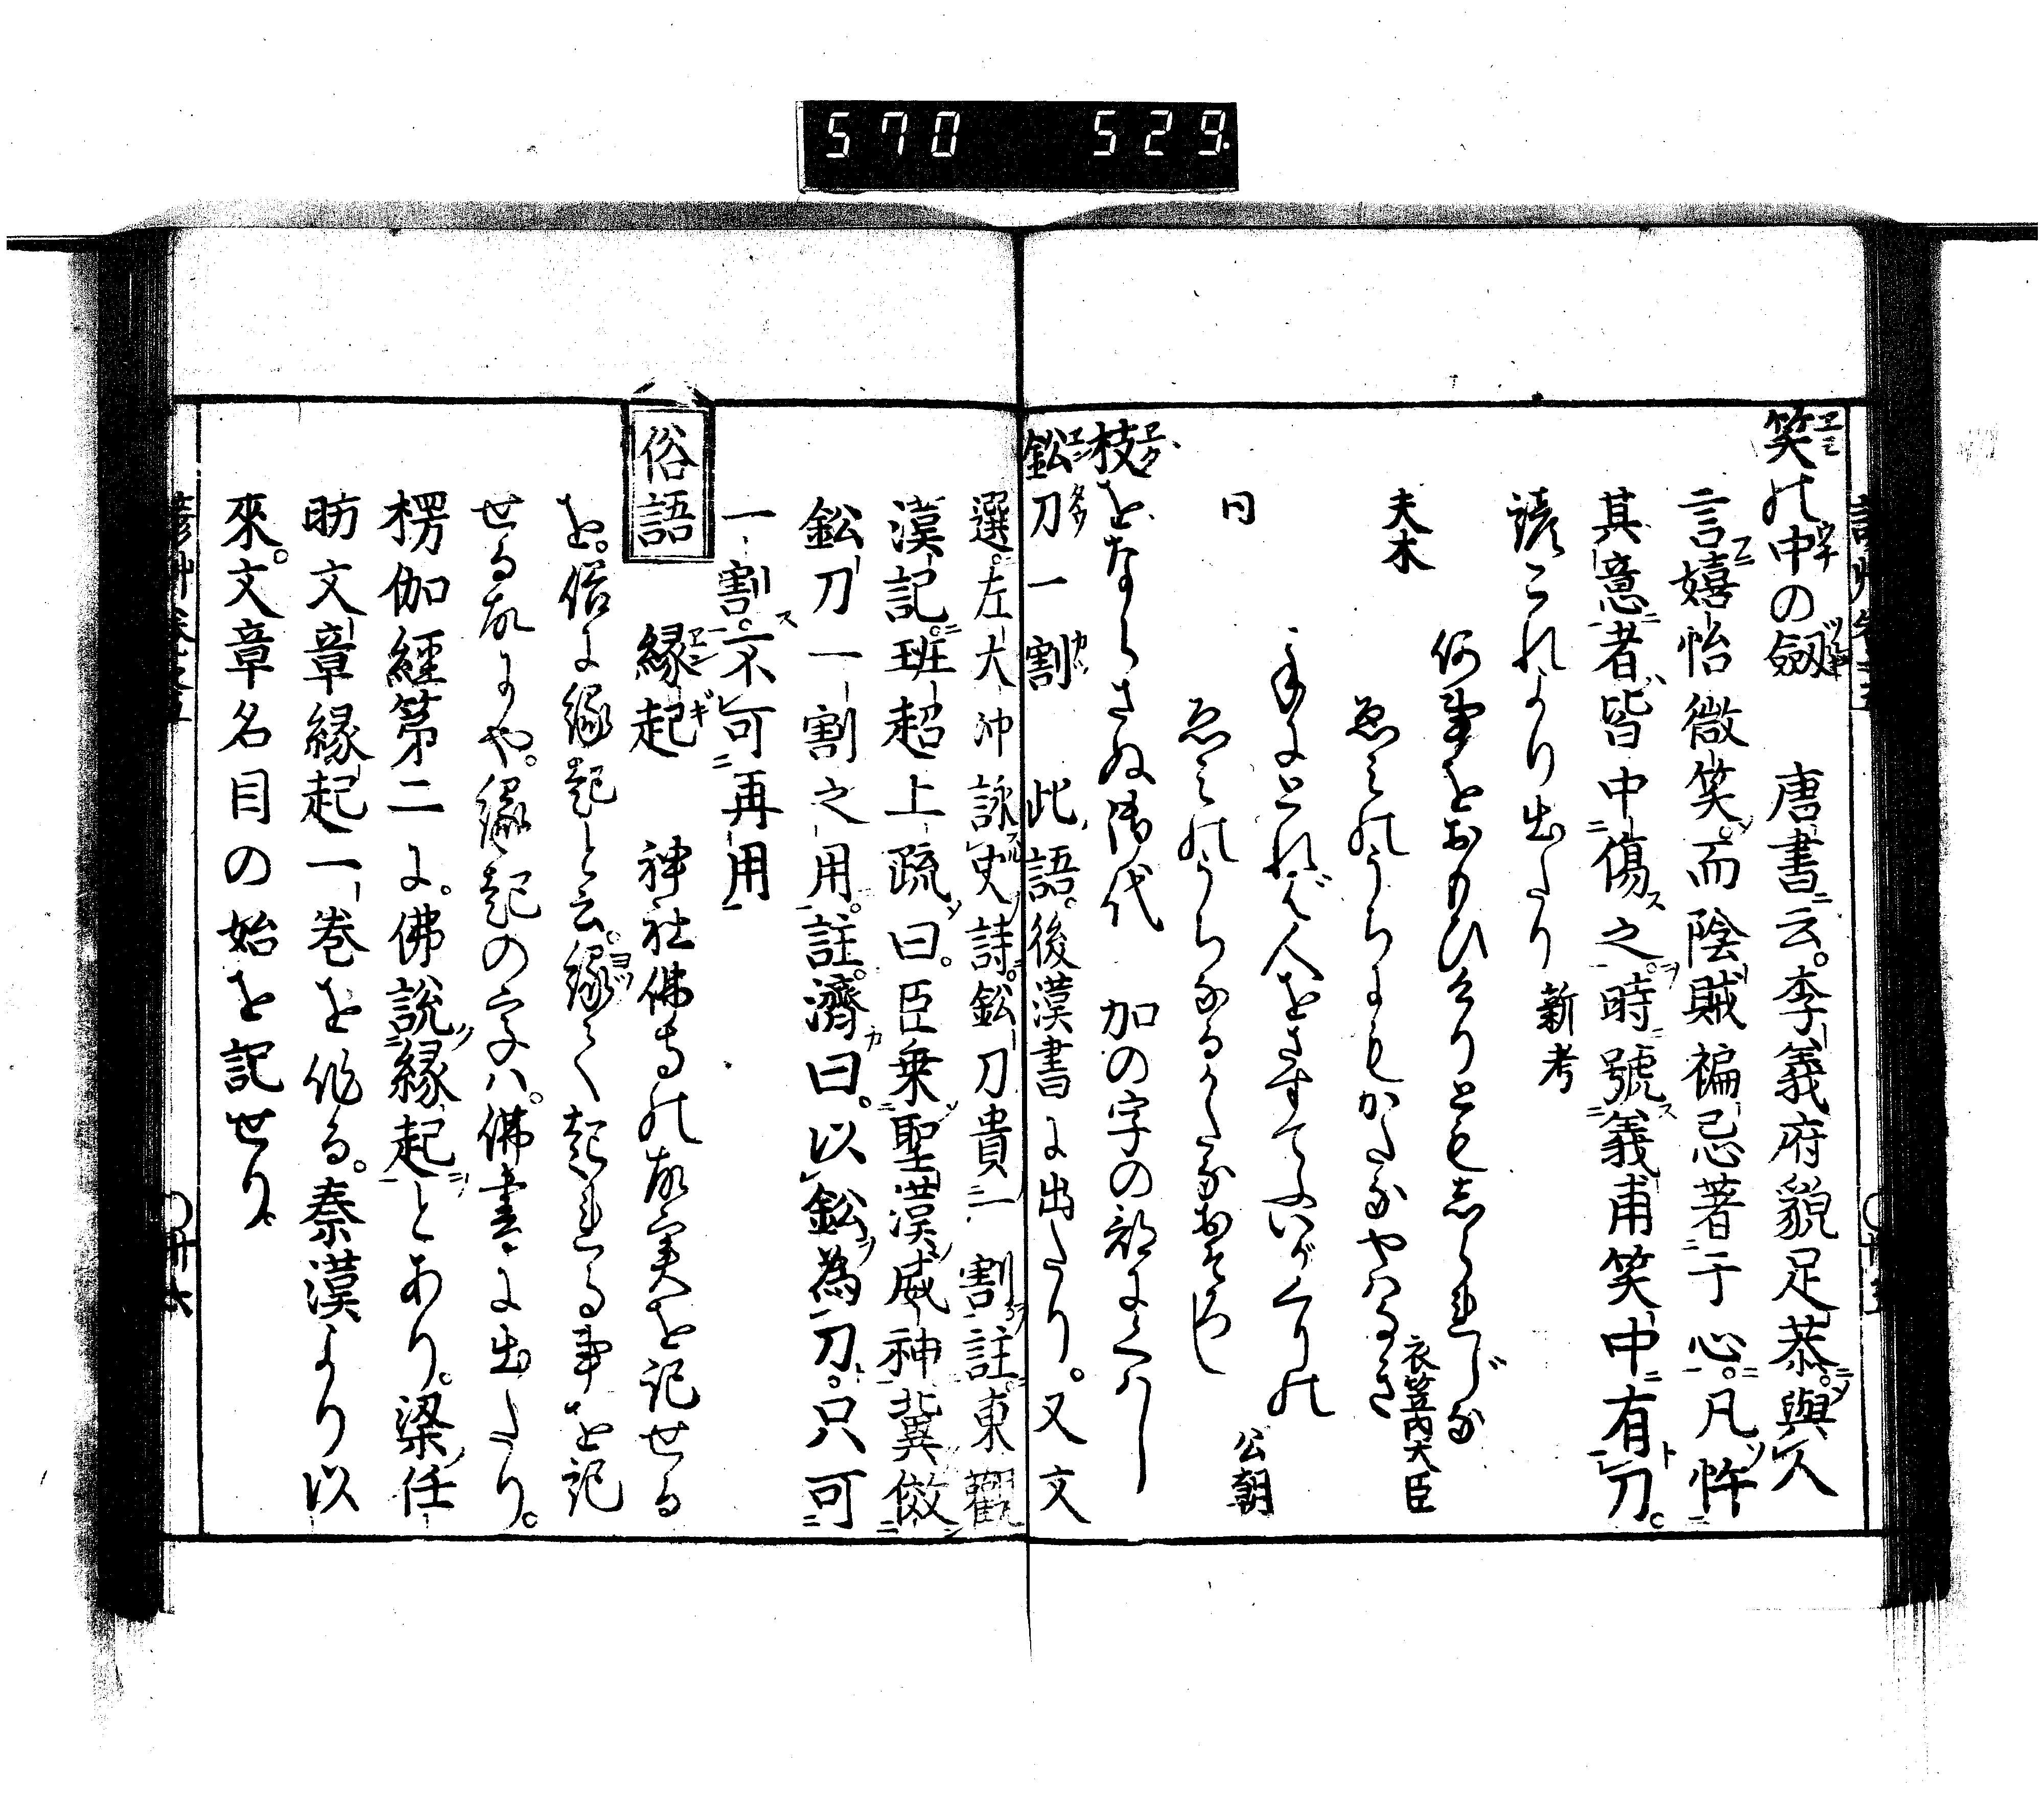 570 529
笑の中の劔 唐書云。李義府貌足恭。與人
言嬉怡微笑。而陰賊褊忌著于心。凡忤
其意者皆中傷之。時號義甫笑中有刀。
諺これより出たり 新考
夫木 何事をおもひけりともしられじな
ゑみのうちにもかたなやはなき 衣笠内大臣
同 手にとれば人をさすてふいがくりの
ゑみのうちなるかたなおそろし 公朝
枝をならさぬ御代 加の字の部にくはし
鈆刀一割 此語。後漢書に出たり。又文
選。左大冲詠史詩。鈆刀貴一割註。東觀
漢記。班超上疏曰。臣乗聖漢威神冀傚
鈆刀一割之用。註。濟曰。以鈆為刀。只可
一割。不可再用
俗語
縁起 神社佛寺の故実を記せる
を。俗に縁起と云。縁て起れる事を記
せる故にや。縁起の字ハ。佛書に出たり。
楞伽經第二に。佛説縁起とあり。梁任
昉文章縁起一巻を作る。秦漢より以
來。文章名目の始を記せり
諺艸巻之五
〇卅六